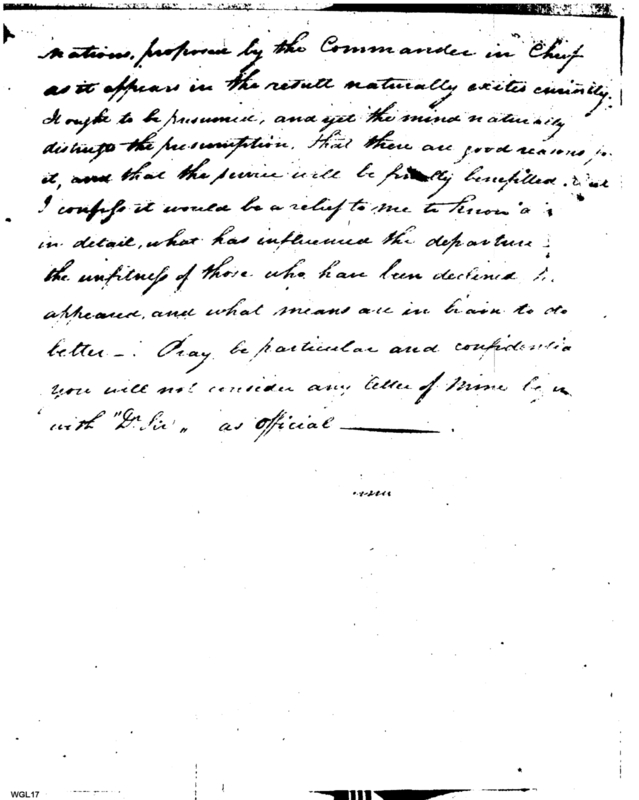 nations, proposed by the Commander in Chief
as it appears in the result naturally exites curiosity.
It ought to be presumed, and yet the mind naturally
distrusts the presumption, that there are good reasons
it, and that the service will be finally benefitted.
I confess it would be a relief to me to know
in detail, what has influenced the departure
the unfitness of those who have been declined
appeared, and what means are in train to do
better—. Pray be particular and confidential
you will not consider any letter of Mine
with "Dr. Sir" as official —.
WGL17